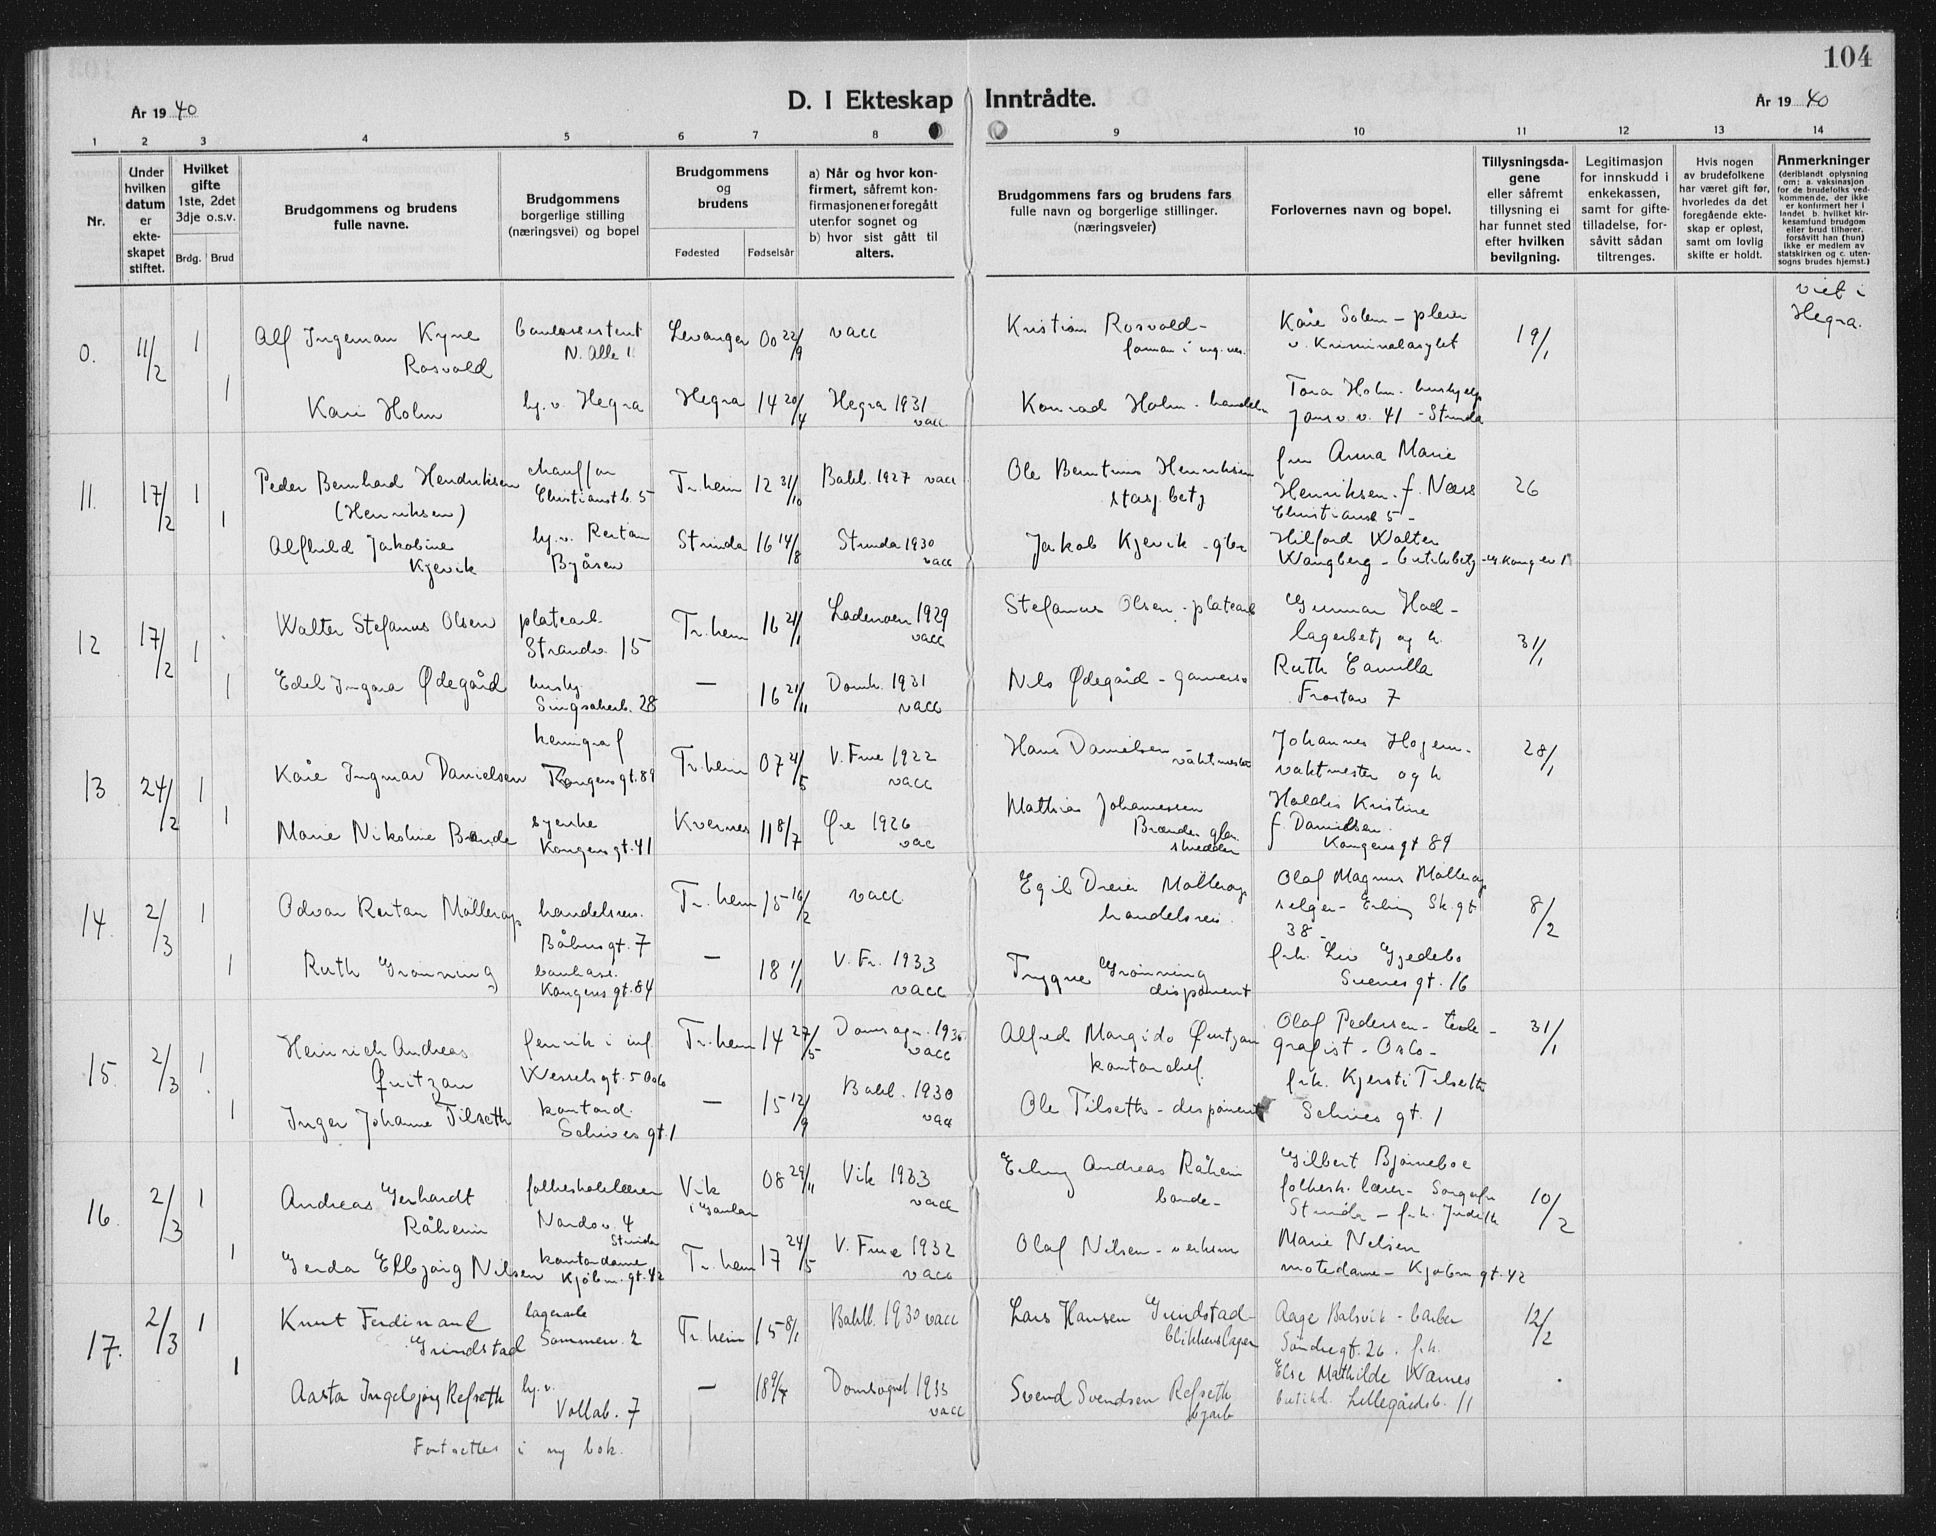 104
År 1940
D. I Ekteskap Inntrådte.
År 1940
1 2 3 4 5 6 7 8 9 10 11 12 13 14
Nr.
Under hvilken datum er ekteskapet stiftet.
Hvilket gifte 1ste, 2det 3dje o.s.v.
Brdg. Brud
Brudgommens og brudens fulle navne.
Brudgommens borgerlige stilling (næringsvei) og bopel
Brudgommens og brudens
Fødested Fødselsår
a) Når og hvor konfirmert, såfremt konfirmasjonen er foregått utenfor sognet og
b) hvor sist gått til alters.
Brudgommens fars og brudens fars fulle navn og borgerlige stillinger. (næringsveier)
Forlovernes navn og bopel.
Tillysningsdagene eller såfremt tillysning ei har funnet sted efter hvilken bevilgning.
Legitimasjon for innskudd i enkekassen, samt for giftetilladelse, forsåvitt sådan tiltrenges.
Hvis nogen av brudefolkene har været gift før, hvorledes da det foregående ekteskap er opløst, samt om lovlig skifte er holdt.
Anmerkninger (deriblandt oplysning om: a. vaksinasjon for de brudefolks vedkommende, der ikke er konfirmert her i landet. b. hvilket kirkesamfund brudgom eller brud tilhører, forsåvitt han (hun) ikke er medlem av statskirken og c. utensogns brudes hjemst.)
0. 11/2 1 Alf Ingeman Kyne Rosvold N. Alle 11 Levanger 00 22/9 vacc Kristian Rosvold Kåre Solem - pleier v. Kriminalasylet 19/1 viet i Hegra.
1 Kari Holm hj. v. Hegra Hegra 14 20/4 Hegra 1931 vacc Konrad Holm - handelm Tora Holm - hushjelp Jonsv. v. 41 - Strinda
11. 17/2 1 Peder Bernhard Hendriksen (Henriksen) chauffør 5 Tr.heim 12 31/10 Bakl. 1927 vacc Ole Berntinus Henriksen stasj.betj fru Anna Marie Henriksen f. Næss 5 - 26
1 Alfhild Jakobine Kjevik hj. v. Byåsen Strinda 16 14/8 Strinda 1930 vacc Jakob Kjevik - gbr Wangberg - butikkbetj
12 17/2 1 Walter Stefanus Olsen platearb. Strandv. 15 Tr.heim 16 21/1 Lademoen 1929 vacc Stefanus Olsen - platearb Gunnar lagerbetj og h. 31/1
1 Edel Ingara Ødegård hushj. Singsakerb. 28 — 16 21/11 Domk. 1931 vacc Nils Ødegård - Ruth Camilla Frostav 7
13 24/2 1 Kåre Ingmar Danielsen kemigraf Kongens gt. 89 Tr.heim 07 21/5 V. Frue 1922 vacc Hans Danielsen - vaktmester Johannes vaktmester og h 28/1
1 Marie Nikoline Brande syerske Kongens gt. 41 Kvernes 11 8/7 Øre 1926 vac Mathias Johannessen skredder Haldis Kristine f. Danielsen. Kongens gt 89
14. 2/3 1 Odvar Reitan Møllerop handelsreis. Båhus gt. 7 Tr.heim 15 16/2 vacc Egil Dreier Møllerop handelsreis. Olaf Magnus Møllerop selger - Erling Sk. gt 38 - 8/2
1 Ruth Grønning bankass. Kongens gt. 84 — 18 1/1 V. Fr. 1933 vacc Trygve Grønning disponent frk. Liv Gjedebo Sverres gt. 16
15. 2/3 1 Heinrich Andreas Øwitzau fenrik i inf Wessels gt. 5 Oslo Tr.heim 14 27/5 vacc Alfred Margido kontorchef Olaf Pedersen - telegrafist - Oslo - 31/1
1 Inger Johanne Tilseth kontord. Schives gt. 1 — 15 12/9 Bakl. 1930 vacc Ole Tilseth - disponent frk. Kjersti Tilseth Schives gt. 1
16. 2/3 1 Andreas Gerhardt Råheim folkeskolelærer Nardov. 4 Strinda Vik 08 29/11 Vik 1933 vacc Erling Andreas Råheim bonde - Gilbert Bjørneboe folkesk. lærer - Strinda - frk. Judith 10/2
1 Gerda Elbjørg Nilsen kontordame Kjøbm. gt. 42 Tr.heim 17 24/5 V. Frue 1932 vacc Olaf Nilsen - Marie Nelsen motedame - Kjøbm gt. 42
17. 2/3 1 Knut Ferdinand Grindstad lagerarb Tr.heim 15 8/1 Bakl. 1930 vacc Lars Hansen Grindstad blikkenslager Aage Balsvik - barber Søndre gt. 26. frk. 12/2
1 Aasta Ingebjørg Refseth hj. v. Vollab. 7 — 18 9/4 Domsognet 1933 vacc Svend Svendsen Refseth Else Mathilde Wærnes butikd. Lillegårdsb. 11
Fortsettes i ny bok.